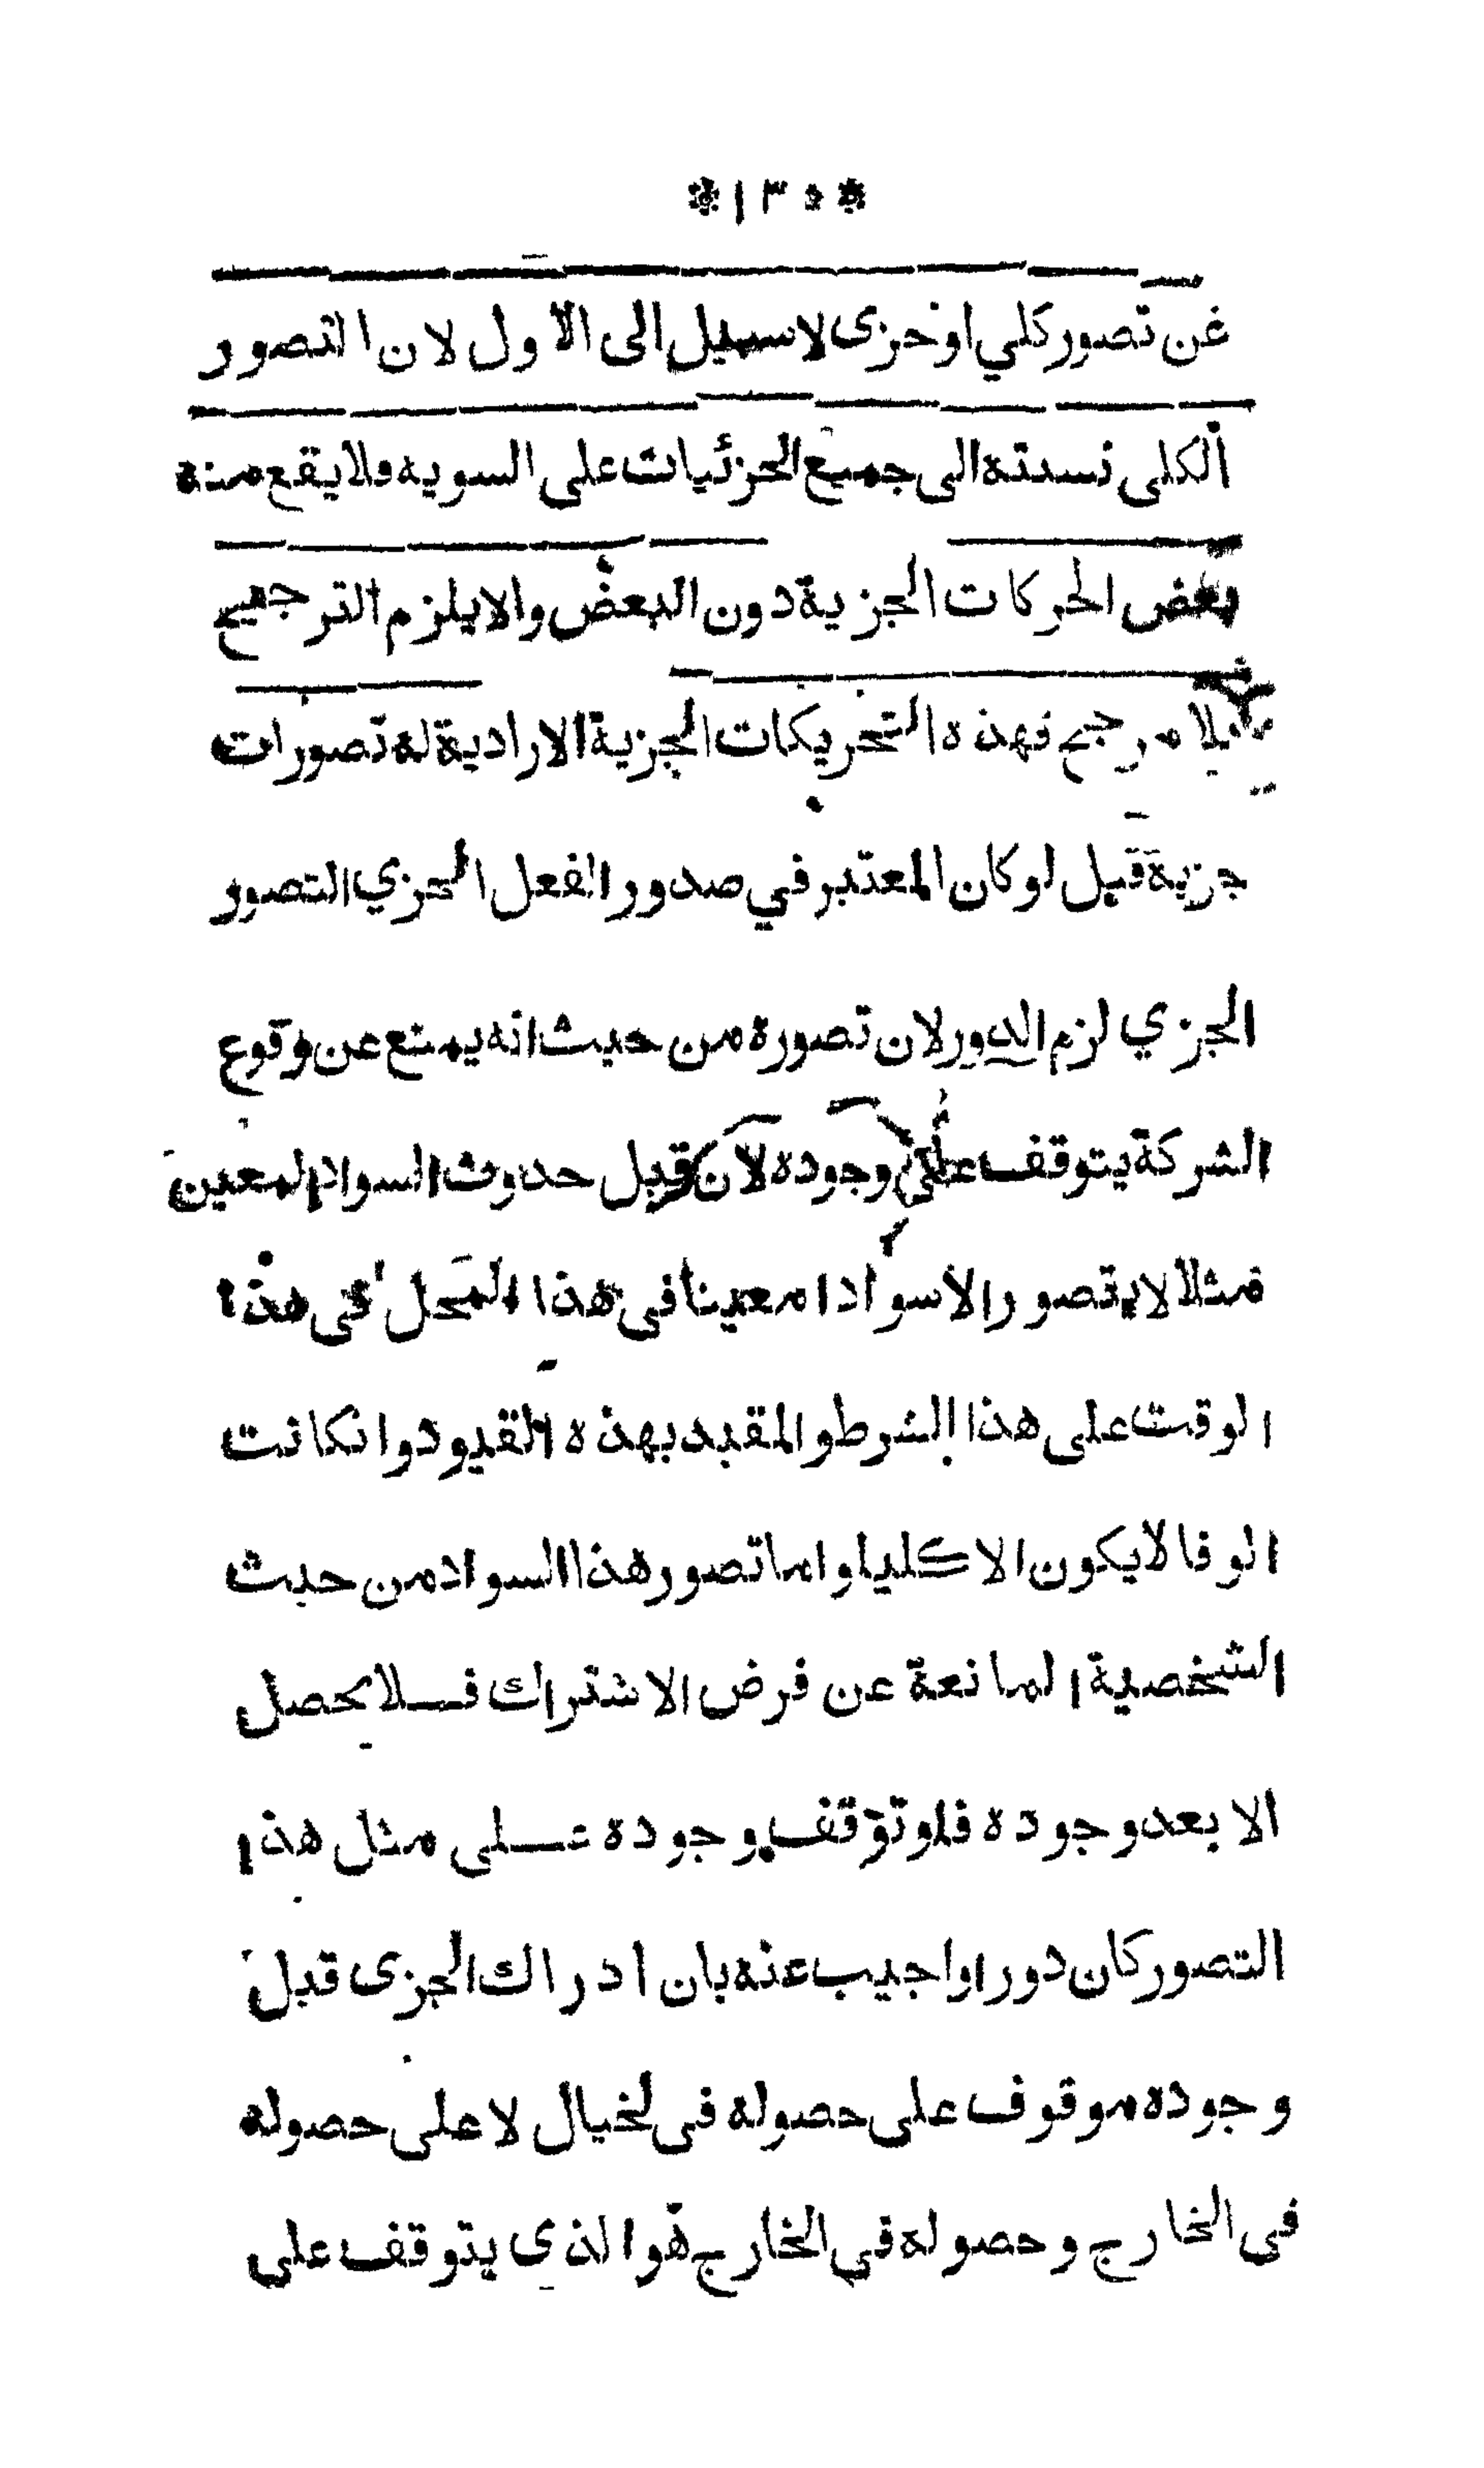 * ١٣٥ *
عن تصور كلي او جزى لا سبيل الى الاول لان التصور
الكلى نسبته الى جميع الجزئيات على السويه فلا يقع منه
بعض الحركات الجزية دون البعض والا يلزم الترجيح
بلا مرجح فهذه التحريكات الجزية الارادية له تصورات
جزية قيل لو كان المعتبر في صدور الفعل الجزي التصور
الجزي لزم الدور لان تصوره من حيث انه يمنع عن وقوع
الشركة يتوقف على وجوده لان قبل حدوث السواد المعين
مثلا لا يتصور الا سوادا معينا في هذا المحل في هذا
الوقت على هذا الشرط والمقيد بهذه القيود وانكانت
الوفا لا يكون الا كليا واما تصور هذا السواد من حيث
الشخصية المانعة عن فرض الاشتراك فلا يحصل
الا بعد وجوده فلو توقف وجوده على مثل هذا
التصور كان دورا واجيب عنه بان ادراك الجزى قبل
وجوده موقوف على حصوله فى لخيال لا على حصوله
فى الخارج وحصوله في الخارج هو الذى يتوقف على